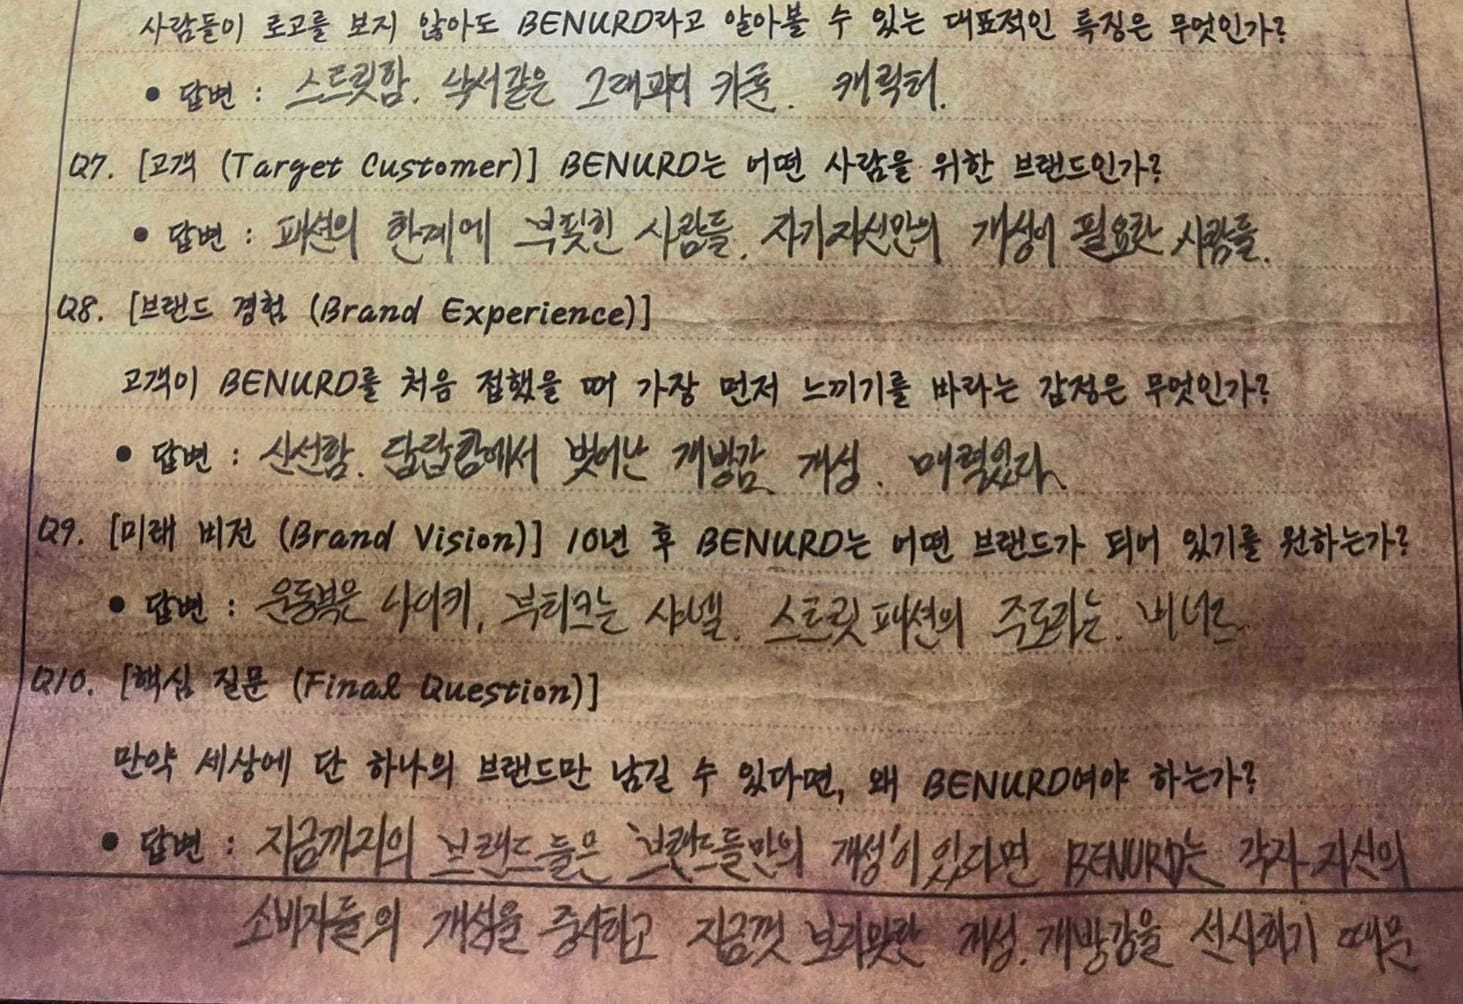 사람들이 로고를 보지 않아도 BENURD라고 알아볼 수 있는 대표적인 특징은 무엇인가?
• 답변 : 스트릿함. 낙서같은 그래피티 카툰. 캐릭터.
Q7. [고객 (Target Customer)] BENURD는 어떤 사람을 위한 브랜드인가?
• 답변 : 패션의 한계에 부딪힌 사람들. 자기자신만의 개성이 필요한 사람들.
Q8. [브랜드 경험 (Brand Experience)]
고객이 BENURD를 처음 접했을 때 가장 먼저 느끼기를 바라는 감정은 무엇인가?
• 답변 : 신선함. 답답함에서 벗어난 개방감. 개성. 매력있다.
Q9. [미래 비전 (Brand Vision)] 10년 후 BENURD는 어떤 브랜드가 되어 있기를 원하는가?
• 답변 : 운동복은 나이키, 부티크는 샤넬. 스트릿 패션의 주도라는. 비너드
Q10. [핵심 질문 (Final Question)]
만약 세상에 단 하나의 브랜드만 남길 수 있다면, 왜 BENURD여야 하는가?
• 답변 : 지금까지의 브랜드들은 '브랜드들만의 개성'이 있다면 BENURD는 각자 자신의
소비자들의 개성을 중시하고 지금껏 보지못한 개성. 개방감을 선사하기 때문